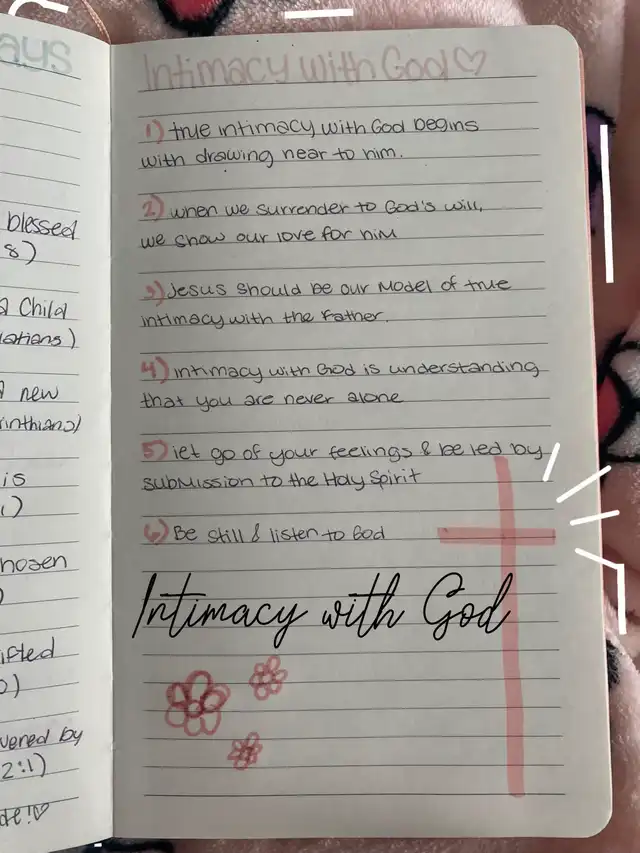 ays
blessed
8)
a Child
ations)
a new
rinthians)
is
1)
hosen
)
ifted
o)
vered by
2:1)
ate!♡
Intimacy with God ♡
1) true intimacy with God begins
with drawing near to him.
2) when we surrender to God's will,
we show our love for him
3) Jesus should be our model of true
intimacy with the Father.
4) intimacy with God is understanding
that you are never alone
5) let go of your feelings & be led by
submission to the Holy Spirit
6) Be still & listen to God
Intimacy with God